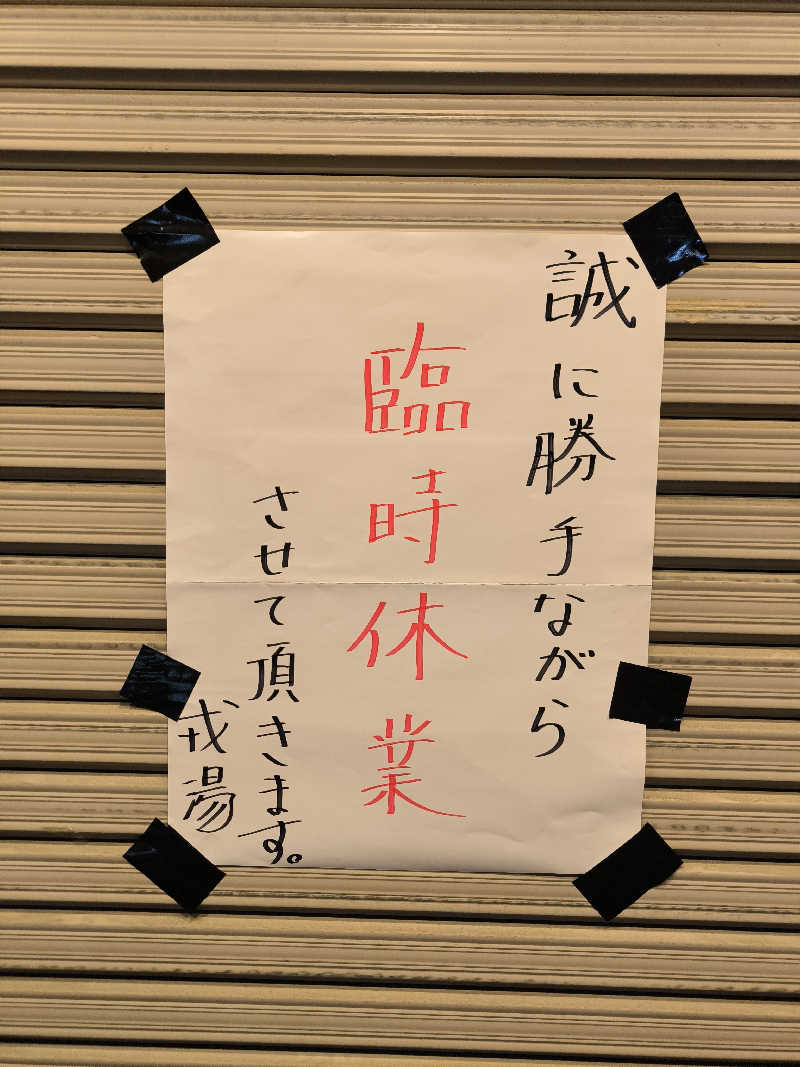 誠に勝手ながら
臨時休業
させて頂きます。
戎湯